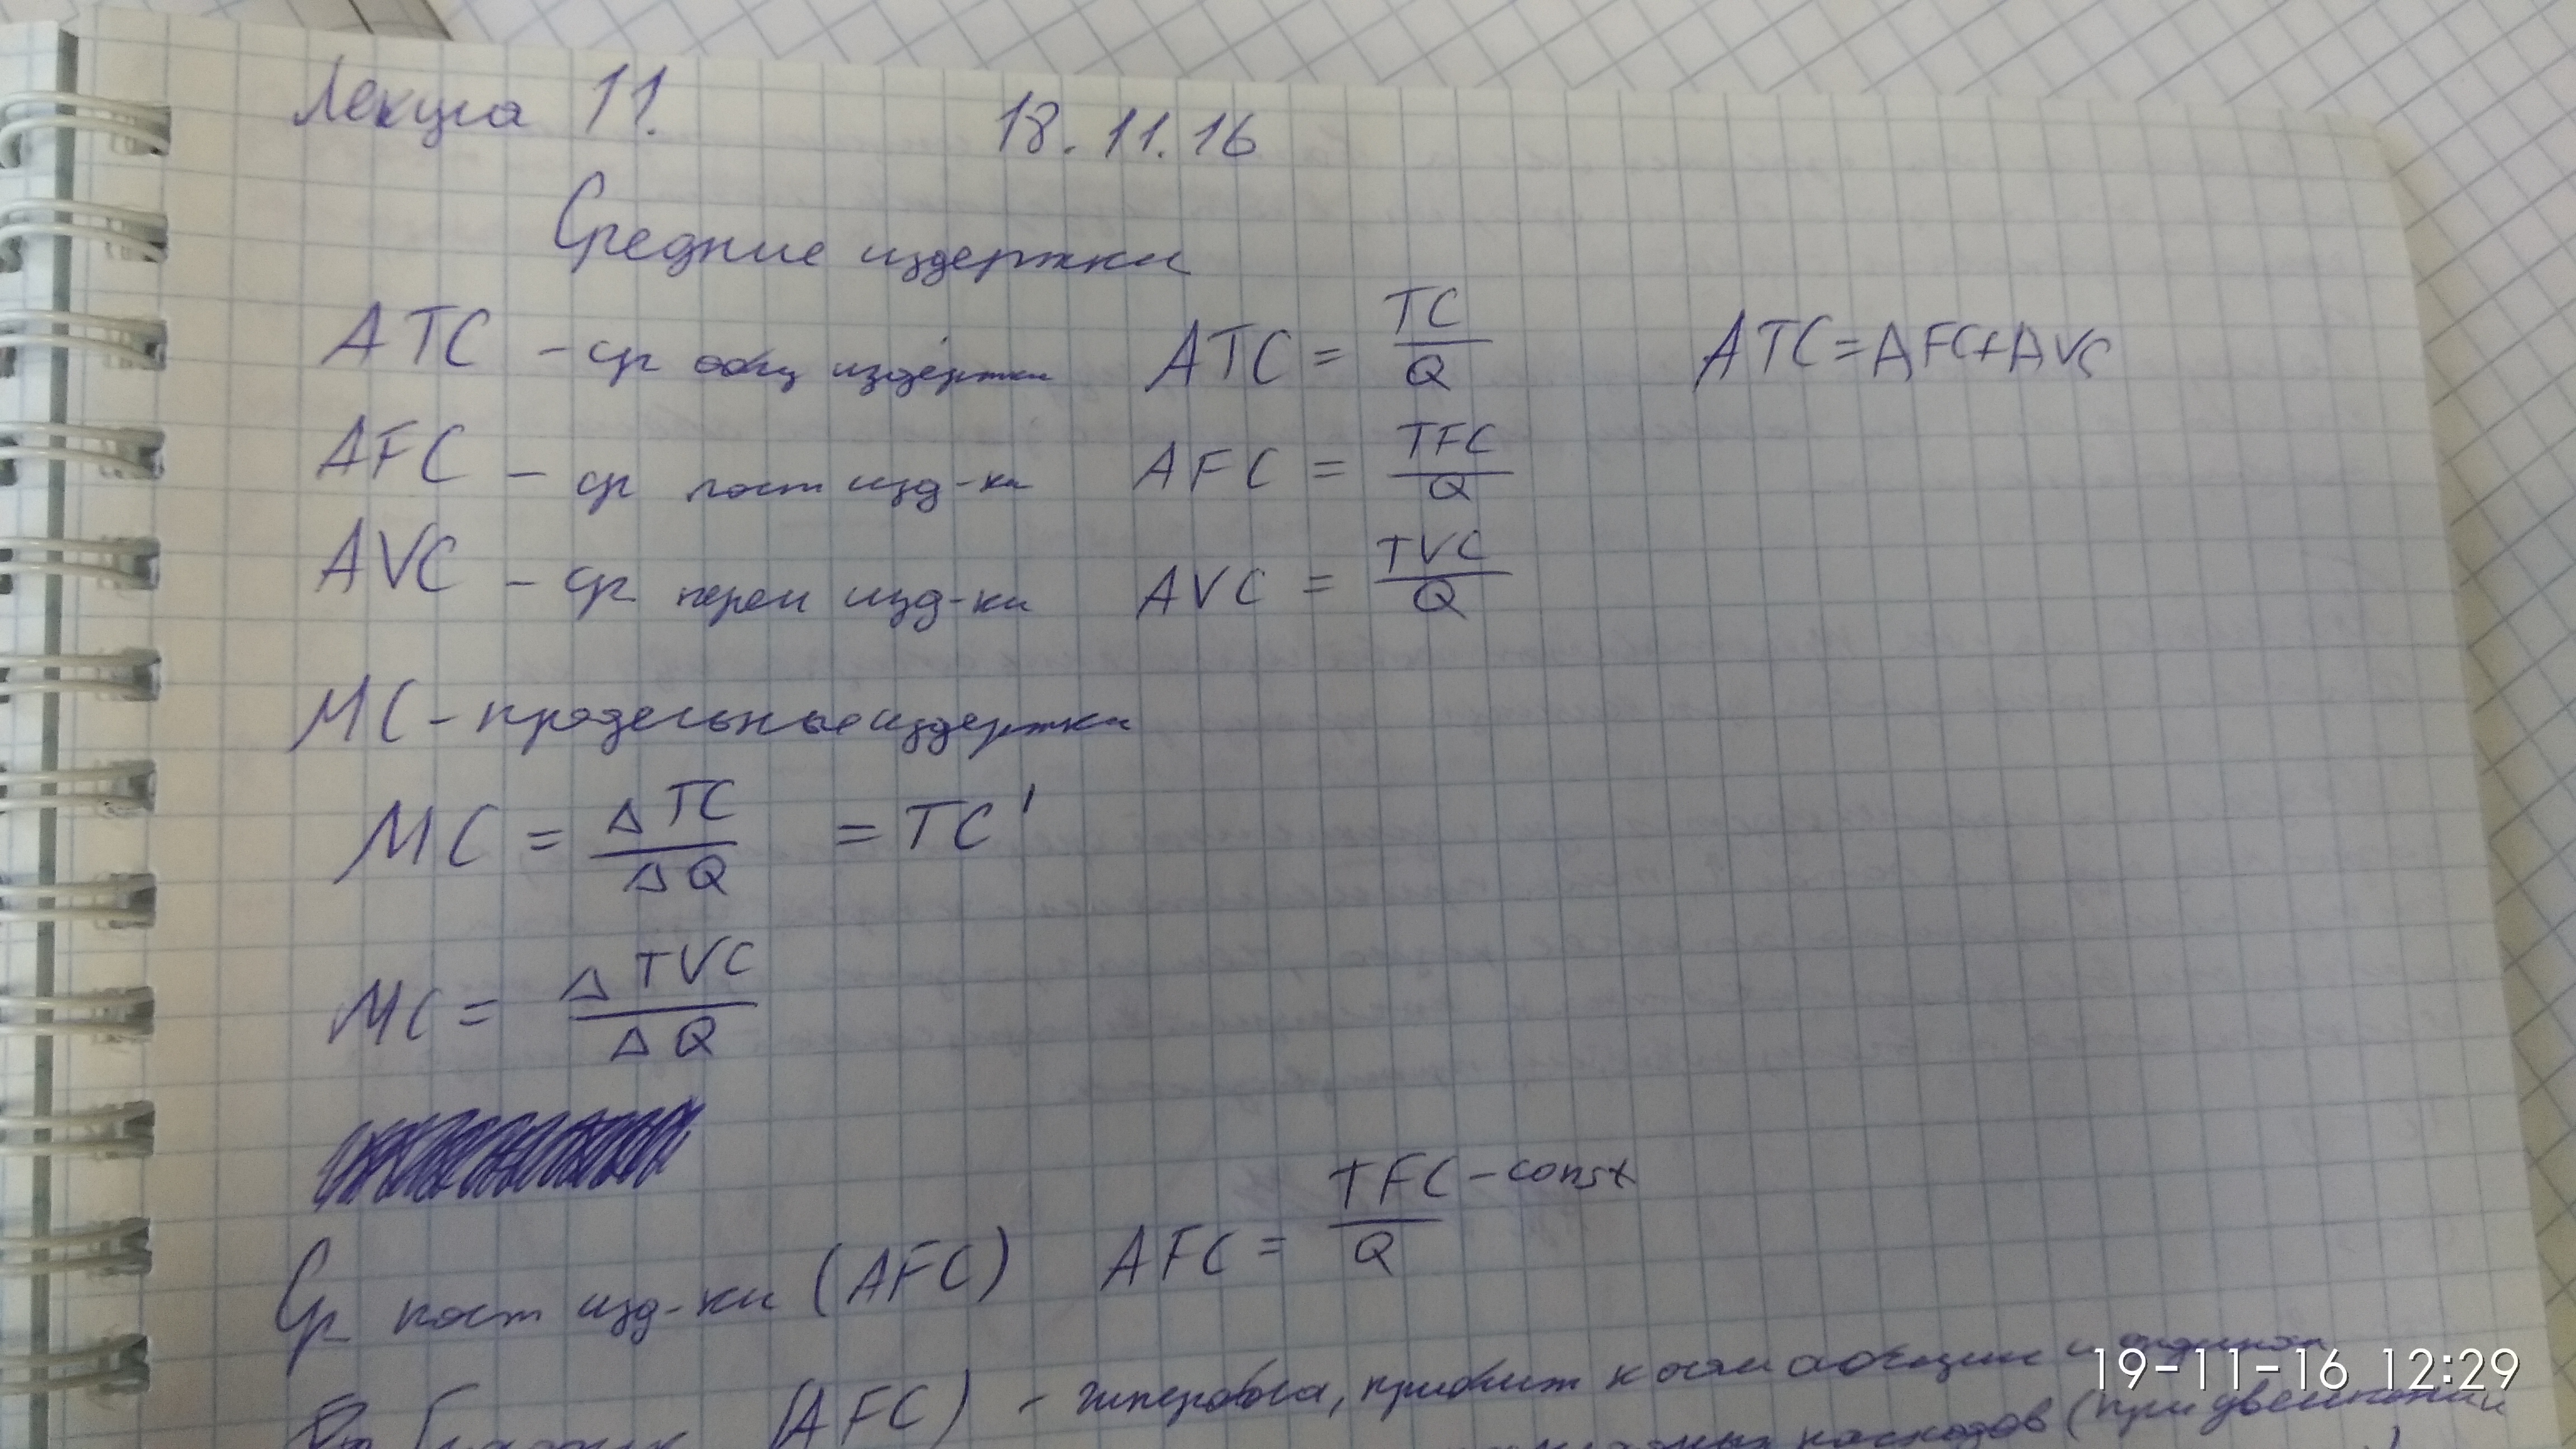 Лекция 11. 18.11.16
Средние издержки
ATC – ср общ издержки ATC = TC / Q ATC = AFC + AVC
AFC – ср пост изд-ки AFC = TFC / Q
AVC – ср перем изд-ки AVC = TVC / Q
MC – предельные издержки
MC = ΔTC / ΔQ = TC'
MC = ΔTVC / ΔQ
Ср пост изд-ки (AFC) AFC = TFC – const / Q
График (AFC) – гипербола, приближ к осям абсцисс и ординат
расходов (при увеличении
19-11-16 12:29